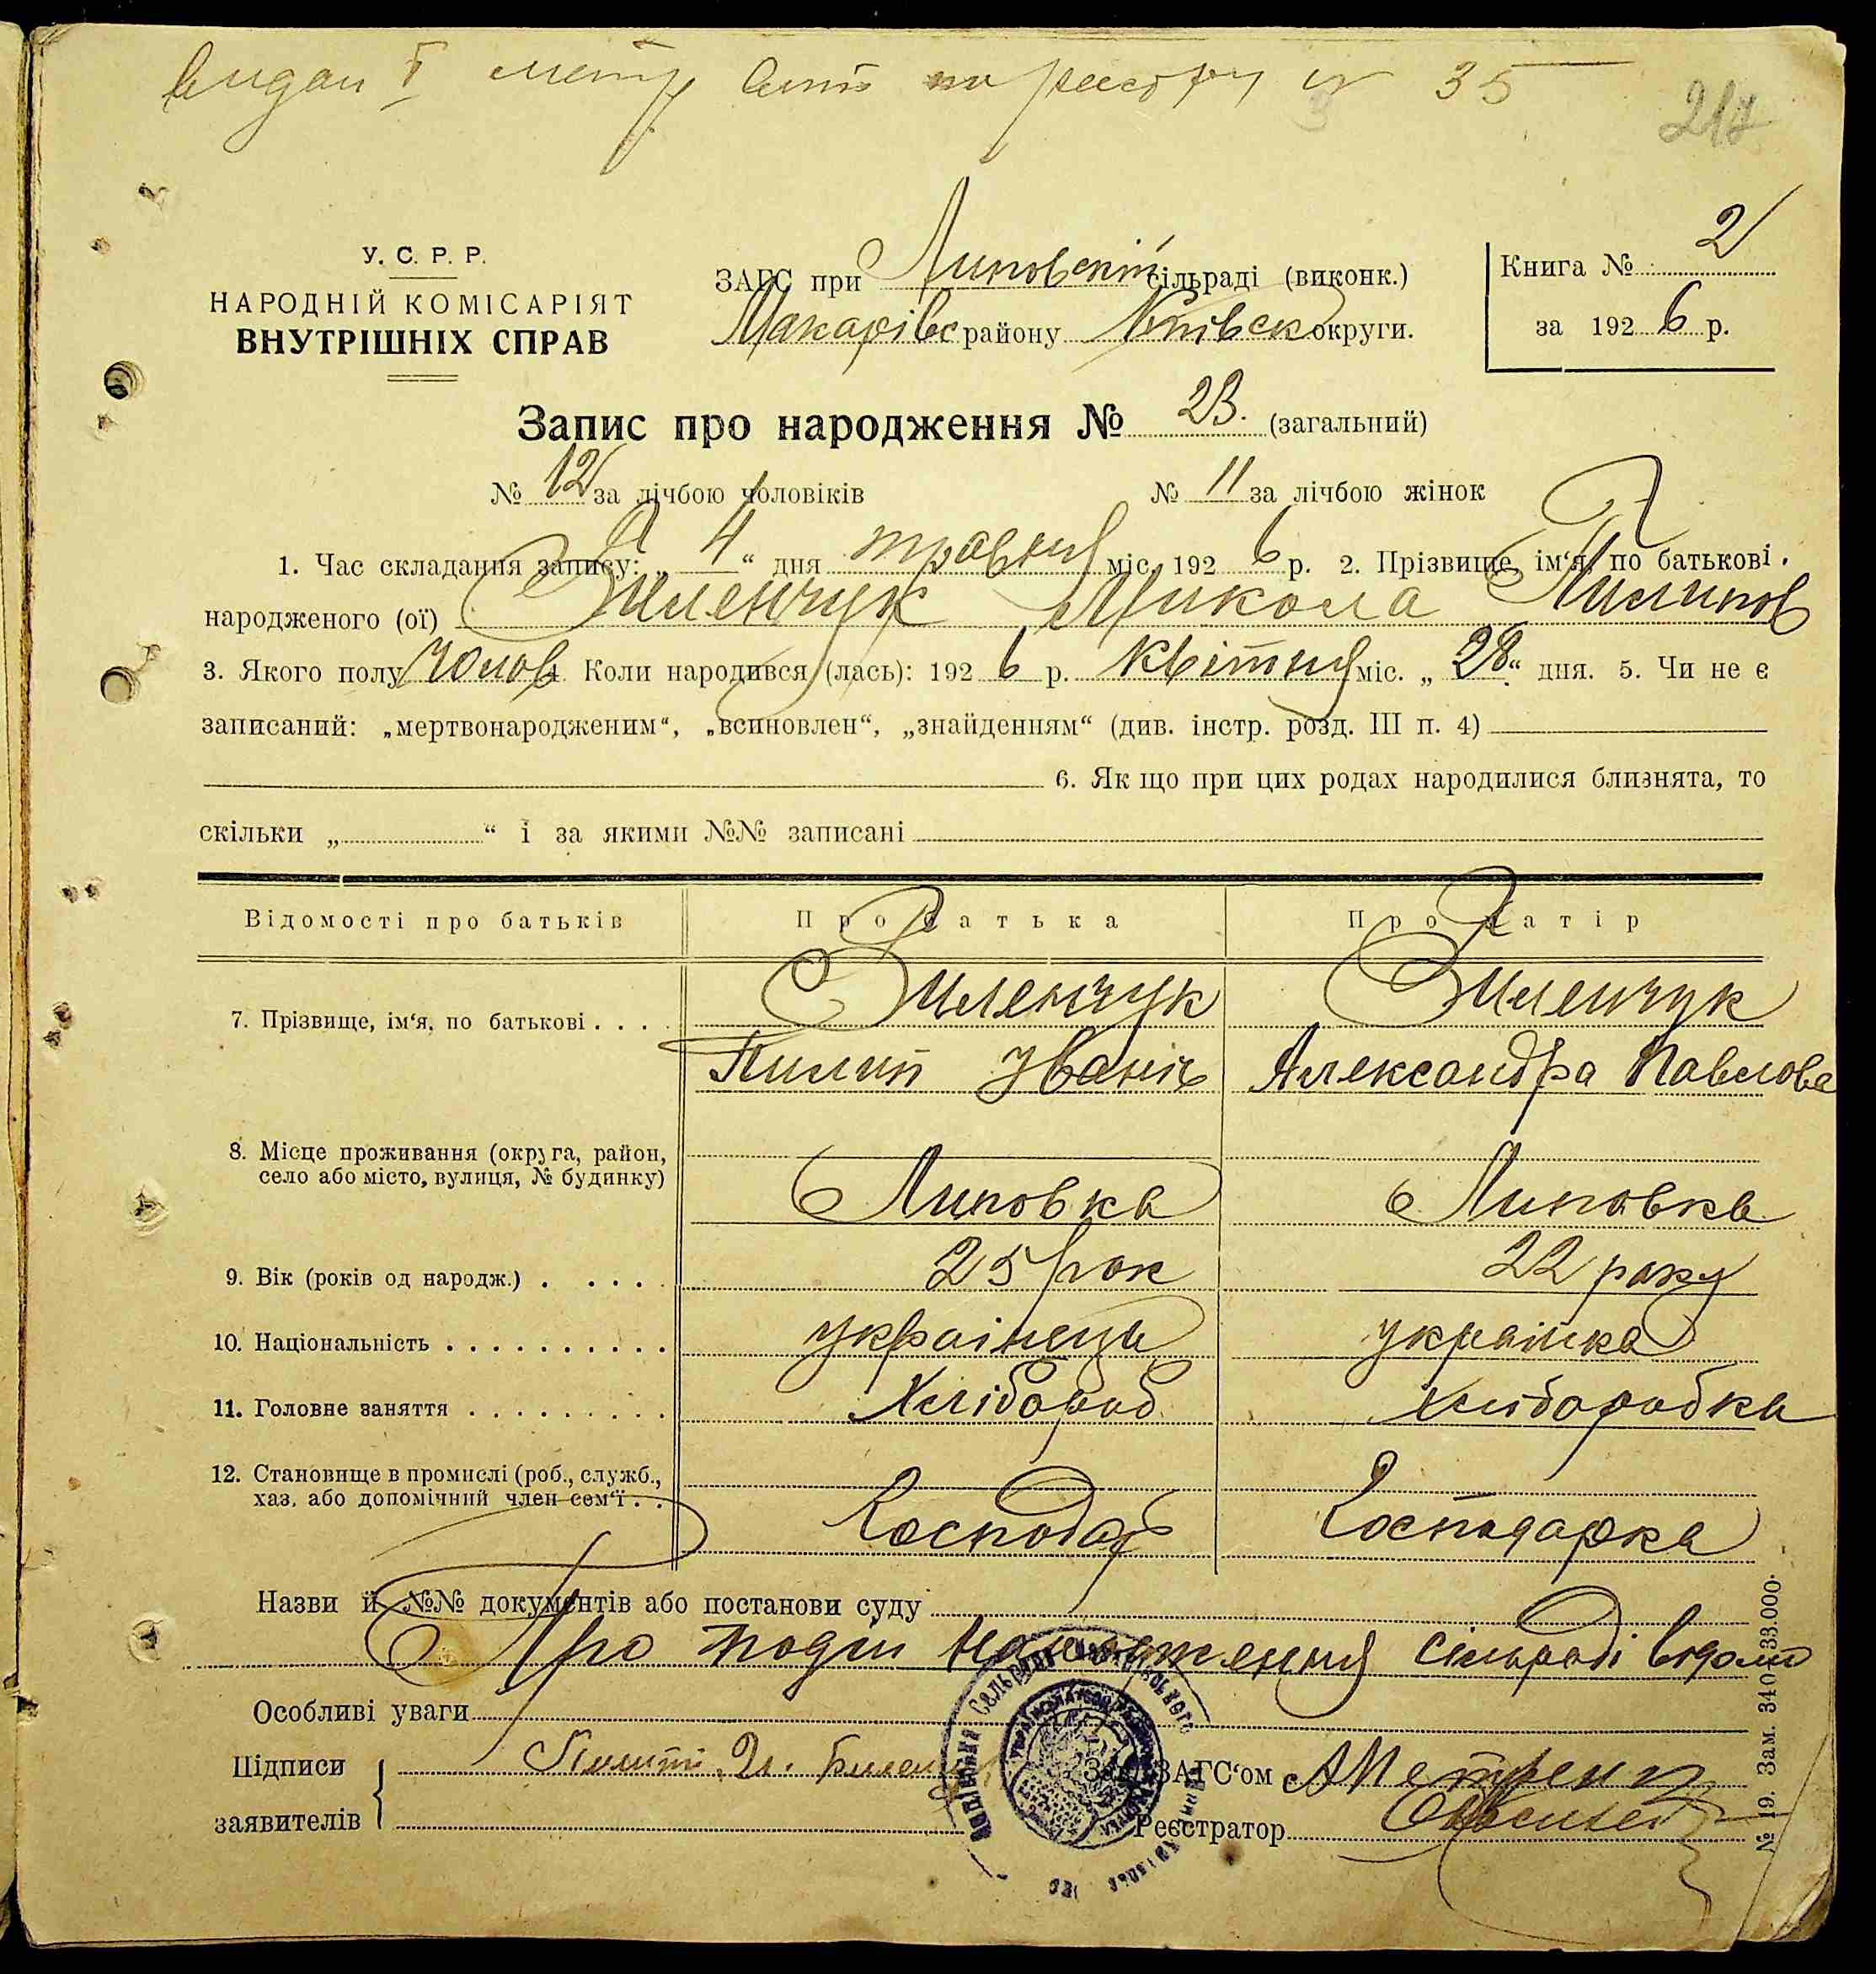 видан
35
217
У. С. Р. Р.
НАРОДНІЙ КОМІСАРІЯТ
ВНУТРІШНІХ СПРАВ
ЗАГС при Липовскій сільраді (виконк.)
Макарівс району Київск округи.
Книга № 2
за 192 6 р.
Запис про народження № 23. (загальний)
№ 12 за лічбою чоловіків № 11 за лічбою жінок
1. Час складання запису: „ 4 “ дня травня міс. 192 6 р. 2. Прізвище, ім‘я, по батькові
народженого (ої) Биленчук Микола Пилипов
3. Якого полу Чолов 4. Коли народився (лась): 192 6 р. Квітня міс. „ 28 “ дня. 5. Чи не є
записаний: „мертвонародженим“, „всиновлен“, „знайденням“ (див. інстр. розд. III п. 4)
6. Як що при цих родах народилися близнята, то
скільки „ “ і за якими №№ записані
Відомості про батьків Про батька Про матір
7. Прізвище, ім‘я, по батькові . . . . Биленчук Биленчук
Пилип Іванів Александра Павлова
8. Місце проживання (округа, район,
село або місто, вулиця, № будинку) Липовка Липовка
9. Вік (років од народж.) . . . . . 25 рок 22 року
10. Національність . . . . . . . . . . українець українка
11. Головне заняття . . . . . . . . . Хлібороб Хлиборобка
12. Становище в промислі (роб., служб.,
хаз. або допомічний член сем‘ї . . Господар Господарка
Назви й №№ документів або постанови суду
Про подію народження сільраді відомо
Особливі уваги
Підписи
заявителів
Пилип И. Биленчук
Зав. ЗАГС‘ом
Реєстратор
№ 19. Зам. 340—33.000.